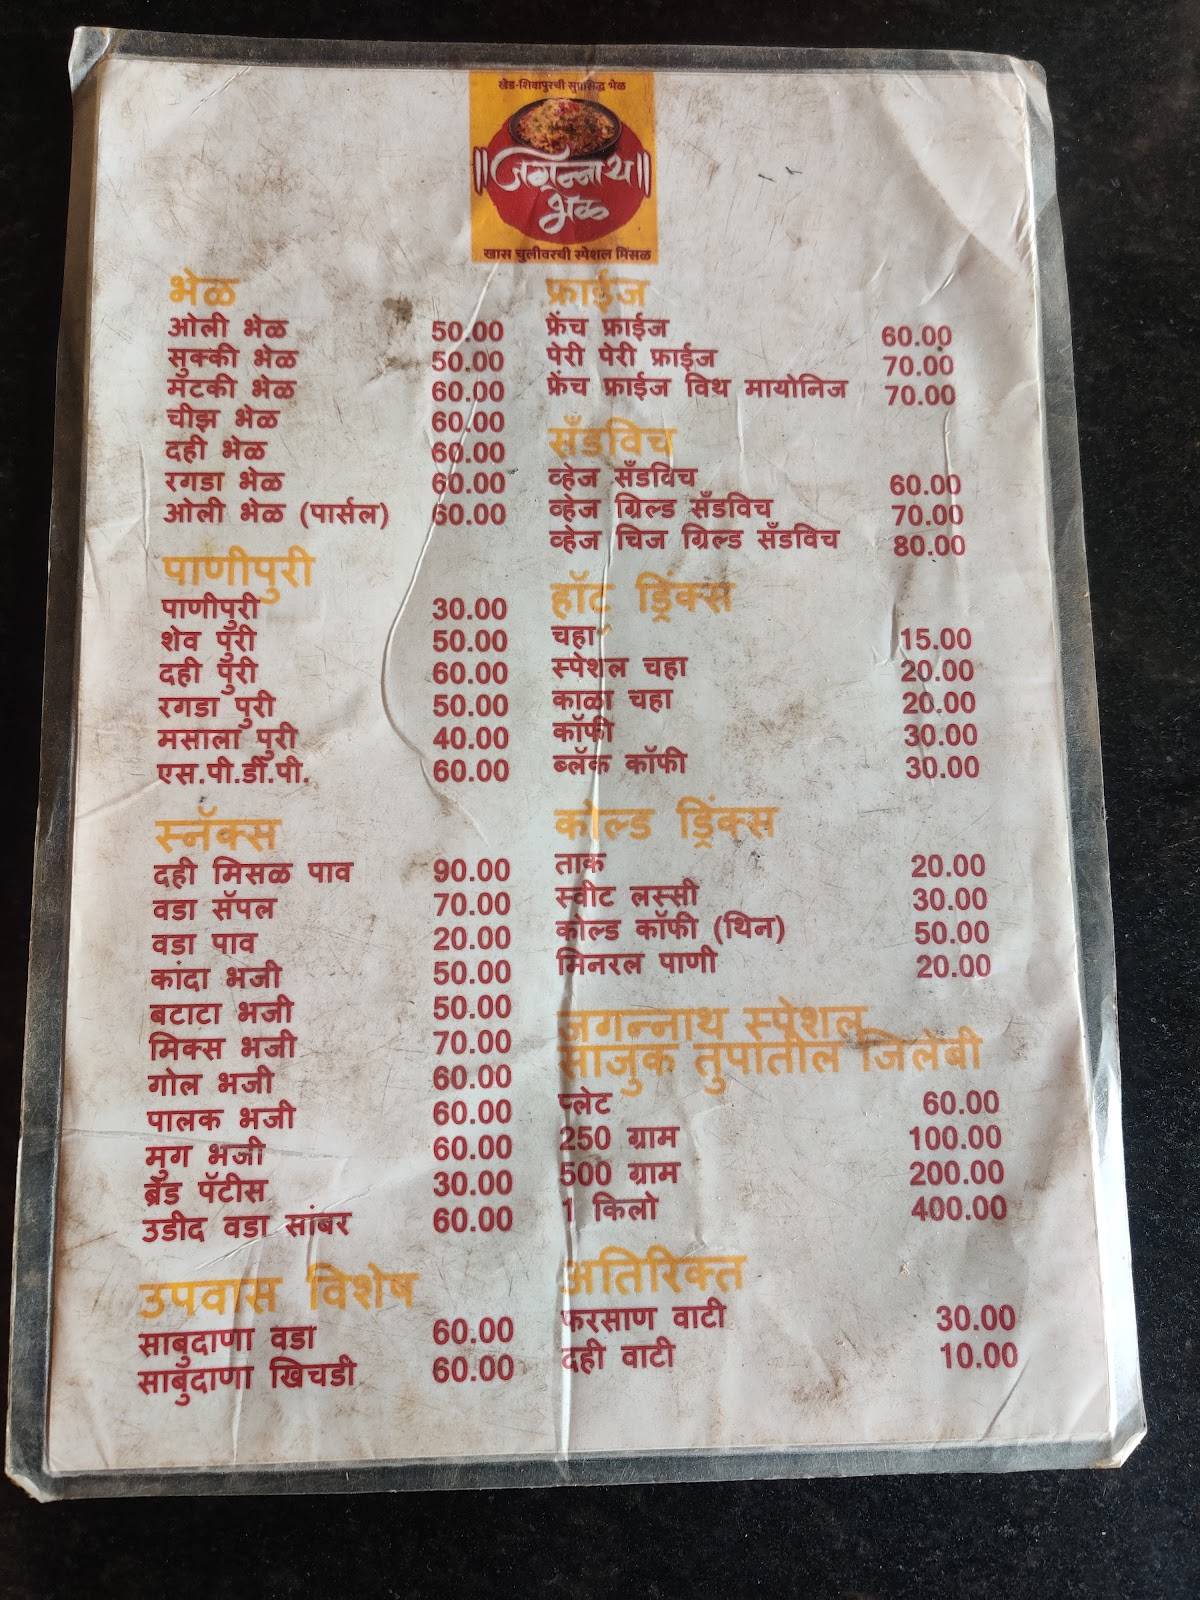 खेड-शिवापुरची सुप्रसिद्ध भेळ
॥जगन्नाथ॥
भेळ
खास चुलीवरची स्पेशल मिसळ
भेळ
ओली भेळ 50.00
सुक्की भेळ 50.00
मटकी भेळ 60.00
चीझ भेळ 60.00
दही भेळ 60.00
रगडा भेळ 60.00
ओली भेळ (पार्सल) 60.00
पाणीपुरी
पाणीपुरी 30.00
शेव पुरी 50.00
दही पुरी 60.00
रगडा पुरी 50.00
मसाला पुरी 40.00
एस.पी.डी.पी. 60.00
स्नॅक्स
दही मिसळ पाव 90.00
वडा सॅपल 70.00
वडा पाव 20.00
कांदा भजी 50.00
बटाटा भजी 50.00
मिक्स भजी 70.00
गोल भजी 60.00
पालक भजी 60.00
मुग भजी 60.00
ब्रेड पॅटीस 30.00
उडीद वडा सांबर 60.00
उपवास विशेष
साबुदाणा वडा 60.00
साबुदाणा खिचडी 60.00
फ्राईज
फ्रेंच फ्राईज 60.00
पेरी पेरी फ्राईज 70.00
फ्रेंच फ्राईज विथ मायोनिज 70.00
सँडविच
व्हेज सँडविच 60.00
व्हेज ग्रिल्ड सँडविच 70.00
व्हेज चिज ग्रिल्ड सँडविच 80.00
हॉट ड्रिंक्स
चहा 15.00
स्पेशल चहा 20.00
काळा चहा 20.00
कॉफी 30.00
ब्लॅक कॉफी 30.00
कोल्ड ड्रिंक्स
ताक 20.00
स्वीट लस्सी 30.00
कोल्ड कॉफी (थिन) 50.00
मिनरल पाणी 20.00
जगन्नाथ स्पेशल
साजुक तुपातील जिलेबी
प्लेट 60.00
250 ग्राम 100.00
500 ग्राम 200.00
1 किलो 400.00
अतिरिक्त
फरसाण वाटी 30.00
दही वाटी 10.00